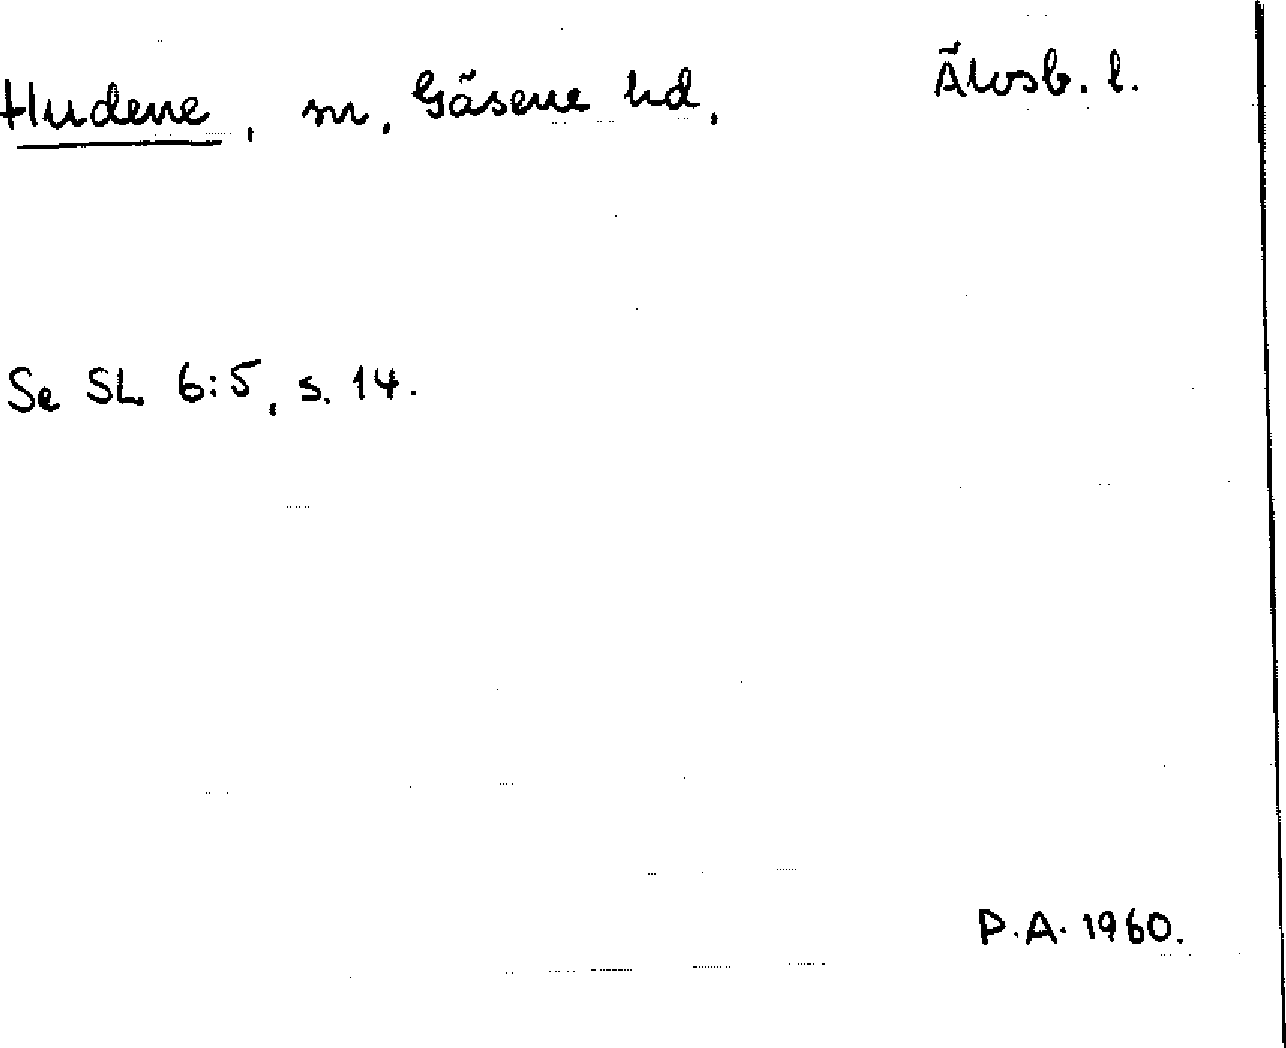 Hudene, sn, Gäsene hd, Älvsb. l.
Se SL 6:5, s. 14.
P.A. 1960.